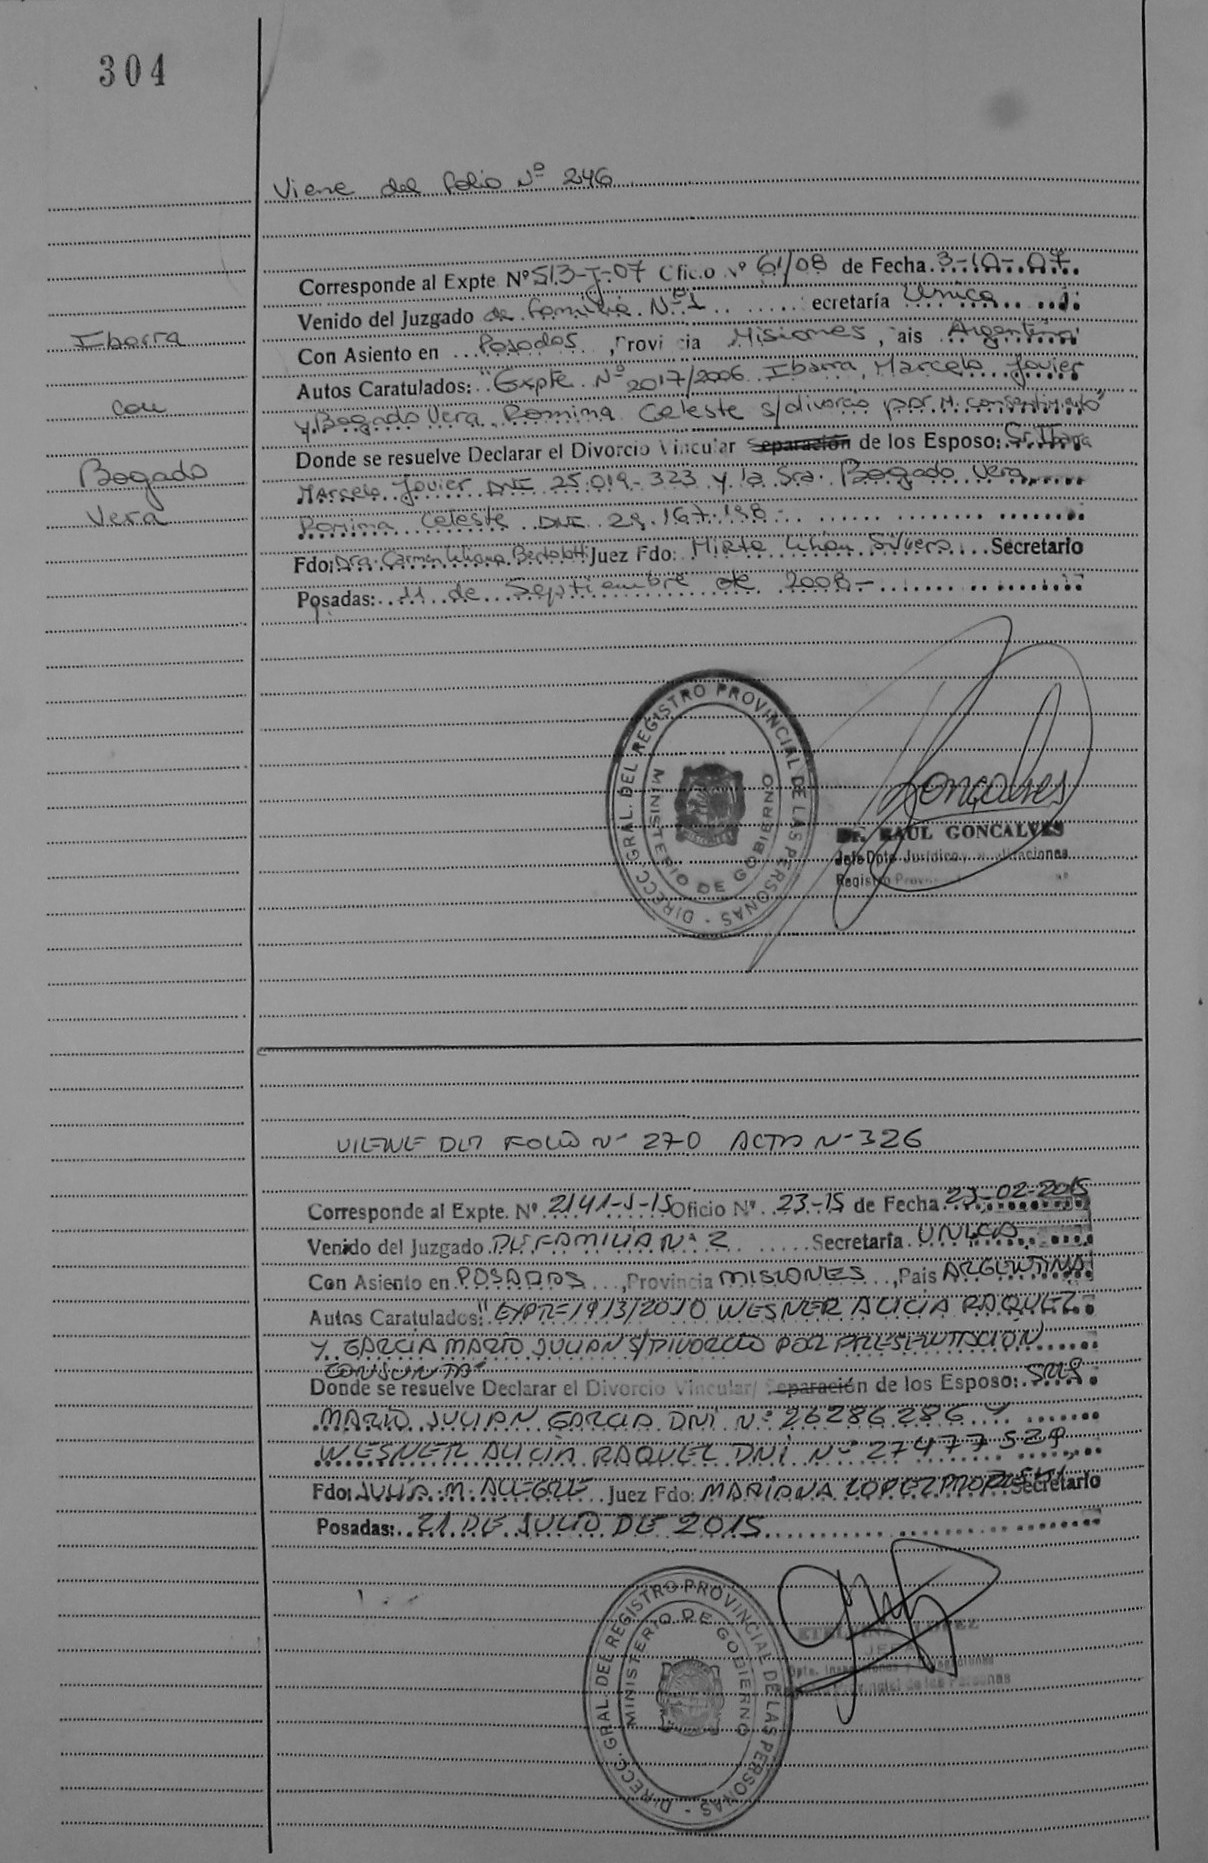 304
Viene del folio Nº 246
Corresponde al Expte Nº 513-J-07 Oficio Nº 61/08 de Fecha 3-10-07
Venido del Juzgado de Familia Nº 1 ecretaría Unica
Ibarra
Con Asiento en Posadas, Provi cia Misiones, ais Argentina
Autos Caratulados: "Expte Nº 2017/2006 Ibarra, Marcelo Javier
con
y Bogado Vera, Romina Celeste s/divorcio por M. consentimiento"
Donde se resuelve Declarar el Divorcio Vincular Separación de los Esposo: Sr. Ibarra
Bogado
Marcelo Javier DNI 25.019.323 y la Sra. Bogado Vera
Vera
Romina Celeste DNI 29.167.198-
Fdo: Dra. Carmen Liliana Bertolotti Juez Fdo: Mirta Lilian Silvero Secretario
Posadas: 11 de Septiembre de 2008-
DIRECC. GRAL. DEL REGISTRO PROVINCIAL DE LAS PERSONAS -
MINISTERIO DE GOBIERNO
Goncalves
Dr. RAUL GONCALVES
Jefe Dpto Jurídico
Registro
VIENE DEL FOLIO Nº 270 ACTA Nº 326
Corresponde al Expte. Nº 2141-J-15 Oficio Nº 23-15 de Fecha 23-02-2015
Venido del Juzgado DE FAMILIA Nº 2 Secretaría UNICA
Con Asiento en POSADAS, Provincia MISIONES, Pais ARGENTINA
Autos Caratulados: "EXPTE 1913/2010 WESNER ALICIA RAQUEL
Y GARCIA MARIO JULIAN S/DIVORCIO POR PRESENTACION
CONJUNTA"
Donde se resuelve Declarar el Divorcio Vincular/ Separación de los Esposo: SRES
MARIO JULIAN GARCIA DNI Nº 26286286 Y
WESNER ALICIA RAQUEL DNI Nº 27477529
Fdo: JULIA M. ALEGRE Juez Fdo: MARIANA LOPEZ Secretario
Posadas: 21 DE JULIO DE 2015
DIRECC. GRAL. DEL REGISTRO PROVINCIAL DE LAS PERSONAS -
MINISTERIO DE GOBIERNO